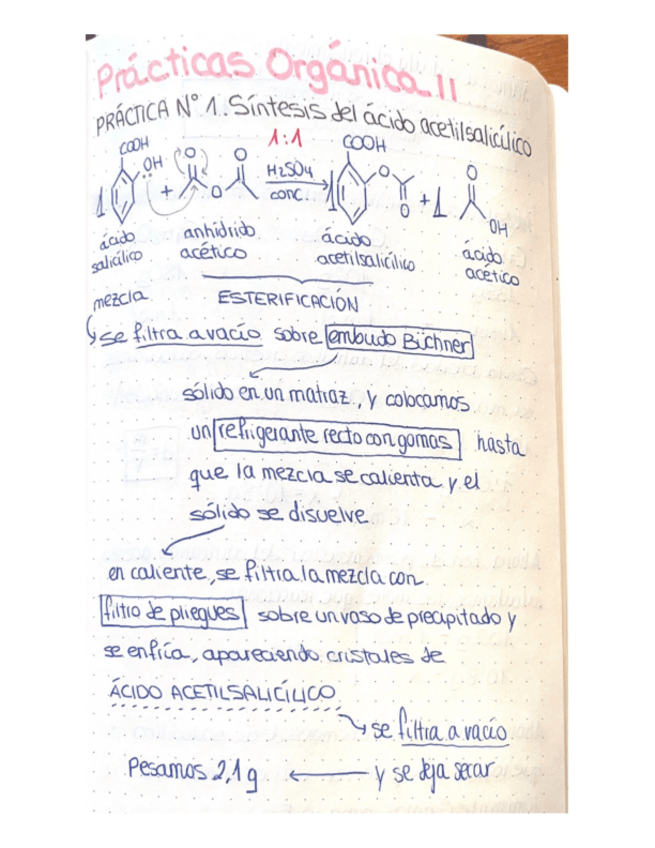 Prácticas Orgánica II
PRÁCTICA Nº 1. Síntesis del ácido acetilsalicílico
COOH OH + O O O 1:1 H₂SO4 conc. COOH O O + 1 O OH
1 1
ácido salicílico
anhídrido acético
ácido acetilsalicílico
ácido acético
ESTERIFICACIÓN
mezcla
se filtra a vacío sobre embudo Büchner
sólido en un matraz, y colocamos
un refrigerante recto con gomas hasta
que la mezcla se calienta y el
sólido se disuelve
en caliente, se filtra la mezcla con
filtro de pliegues sobre un vaso de precipitado y
se enfría, apareciendo cristales de
ÁCIDO ACETILSALICÍLICO
se filtra a vacío
Pesamos 2,1 g y se deja secar